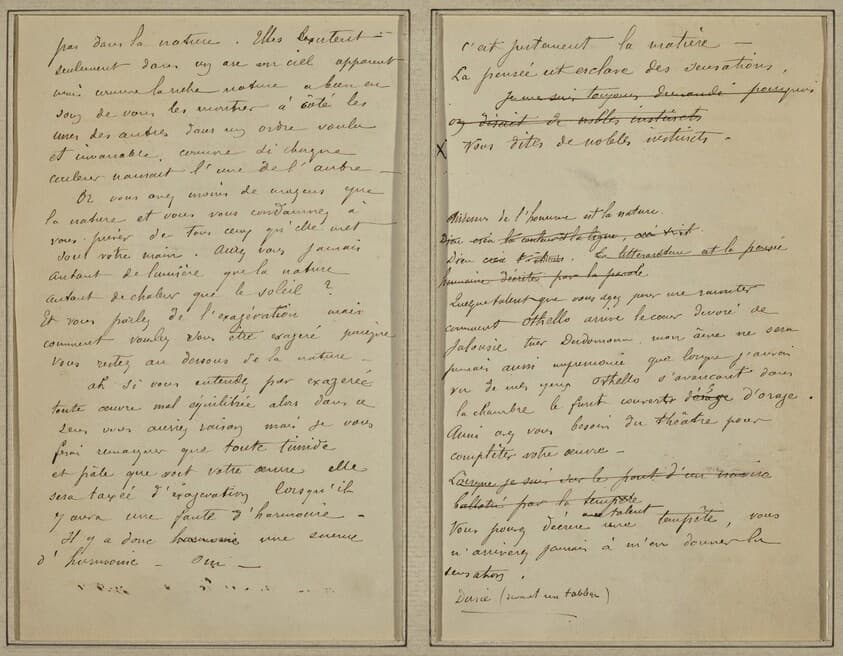 pas dans la nature. Elles existent
seulement dans un arc en ciel apparent
mais comme la riche nature a bien eu
soin de vous les montrer à côté les
unes des autres dans un ordre voulu
et invariable, comme si chaque
couleur naissait l'une de l'autre —
Or vous avez moins de moyens que
la nature et vous vous condamnez à
vous priver de tous ceux qu'elle met
sous votre main. Aurez vous jamais
autant de lumière que la nature
autant de chaleur que le soleil ?
Et vous parlez de l'exagération mais
comment voulez vous être exagéré puisque
vous restez au dessous de la nature —
ah si vous entendez par exagérée
toute œuvre mal équilibrée alors dans ce
sens vous auriez raison mais je vous
ferai remarquer que toute timide
et pâle que soit votre œuvre elle
sera taxée d'exagération lorsqu'il
y aura une faute d'harmonie —
Il y a donc une science
d'harmonie — Oui —
c'est justement la matière —
La pensée est esclave des sensations.
Je me suis toujours demandé pourquoi
on disait de nobles instincts
X Vous dites de nobles instincts —
Audessus de l'homme est la nature.
Dieu créa
Dieu La littérature est la pensée
humaine décrite par la parole
Quelque talent que vous ayez pour me raconter
comment Othello arrive le cœur dévoré de
jalousie tuer Desdemona, mon âme ne sera
jamais aussi impressionée que lorsque j'aurai
vu de mes yeux Othello s'avançant dans
la chambre le front couvert d'orage.
Aussi avez vous besoin du théâtre pour
compléter votre œuvre —
Lorsque je suis sur le pont d'un navire
ballotté par la tempête
Vous pouvez décrire avec talent une tempête, vous
n'arriverez jamais à m'en donner la
sensation.